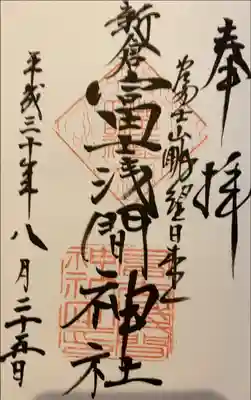 奉拝
富士山眺望日本一
新倉富士浅間神社
平成三十年八月二十五日